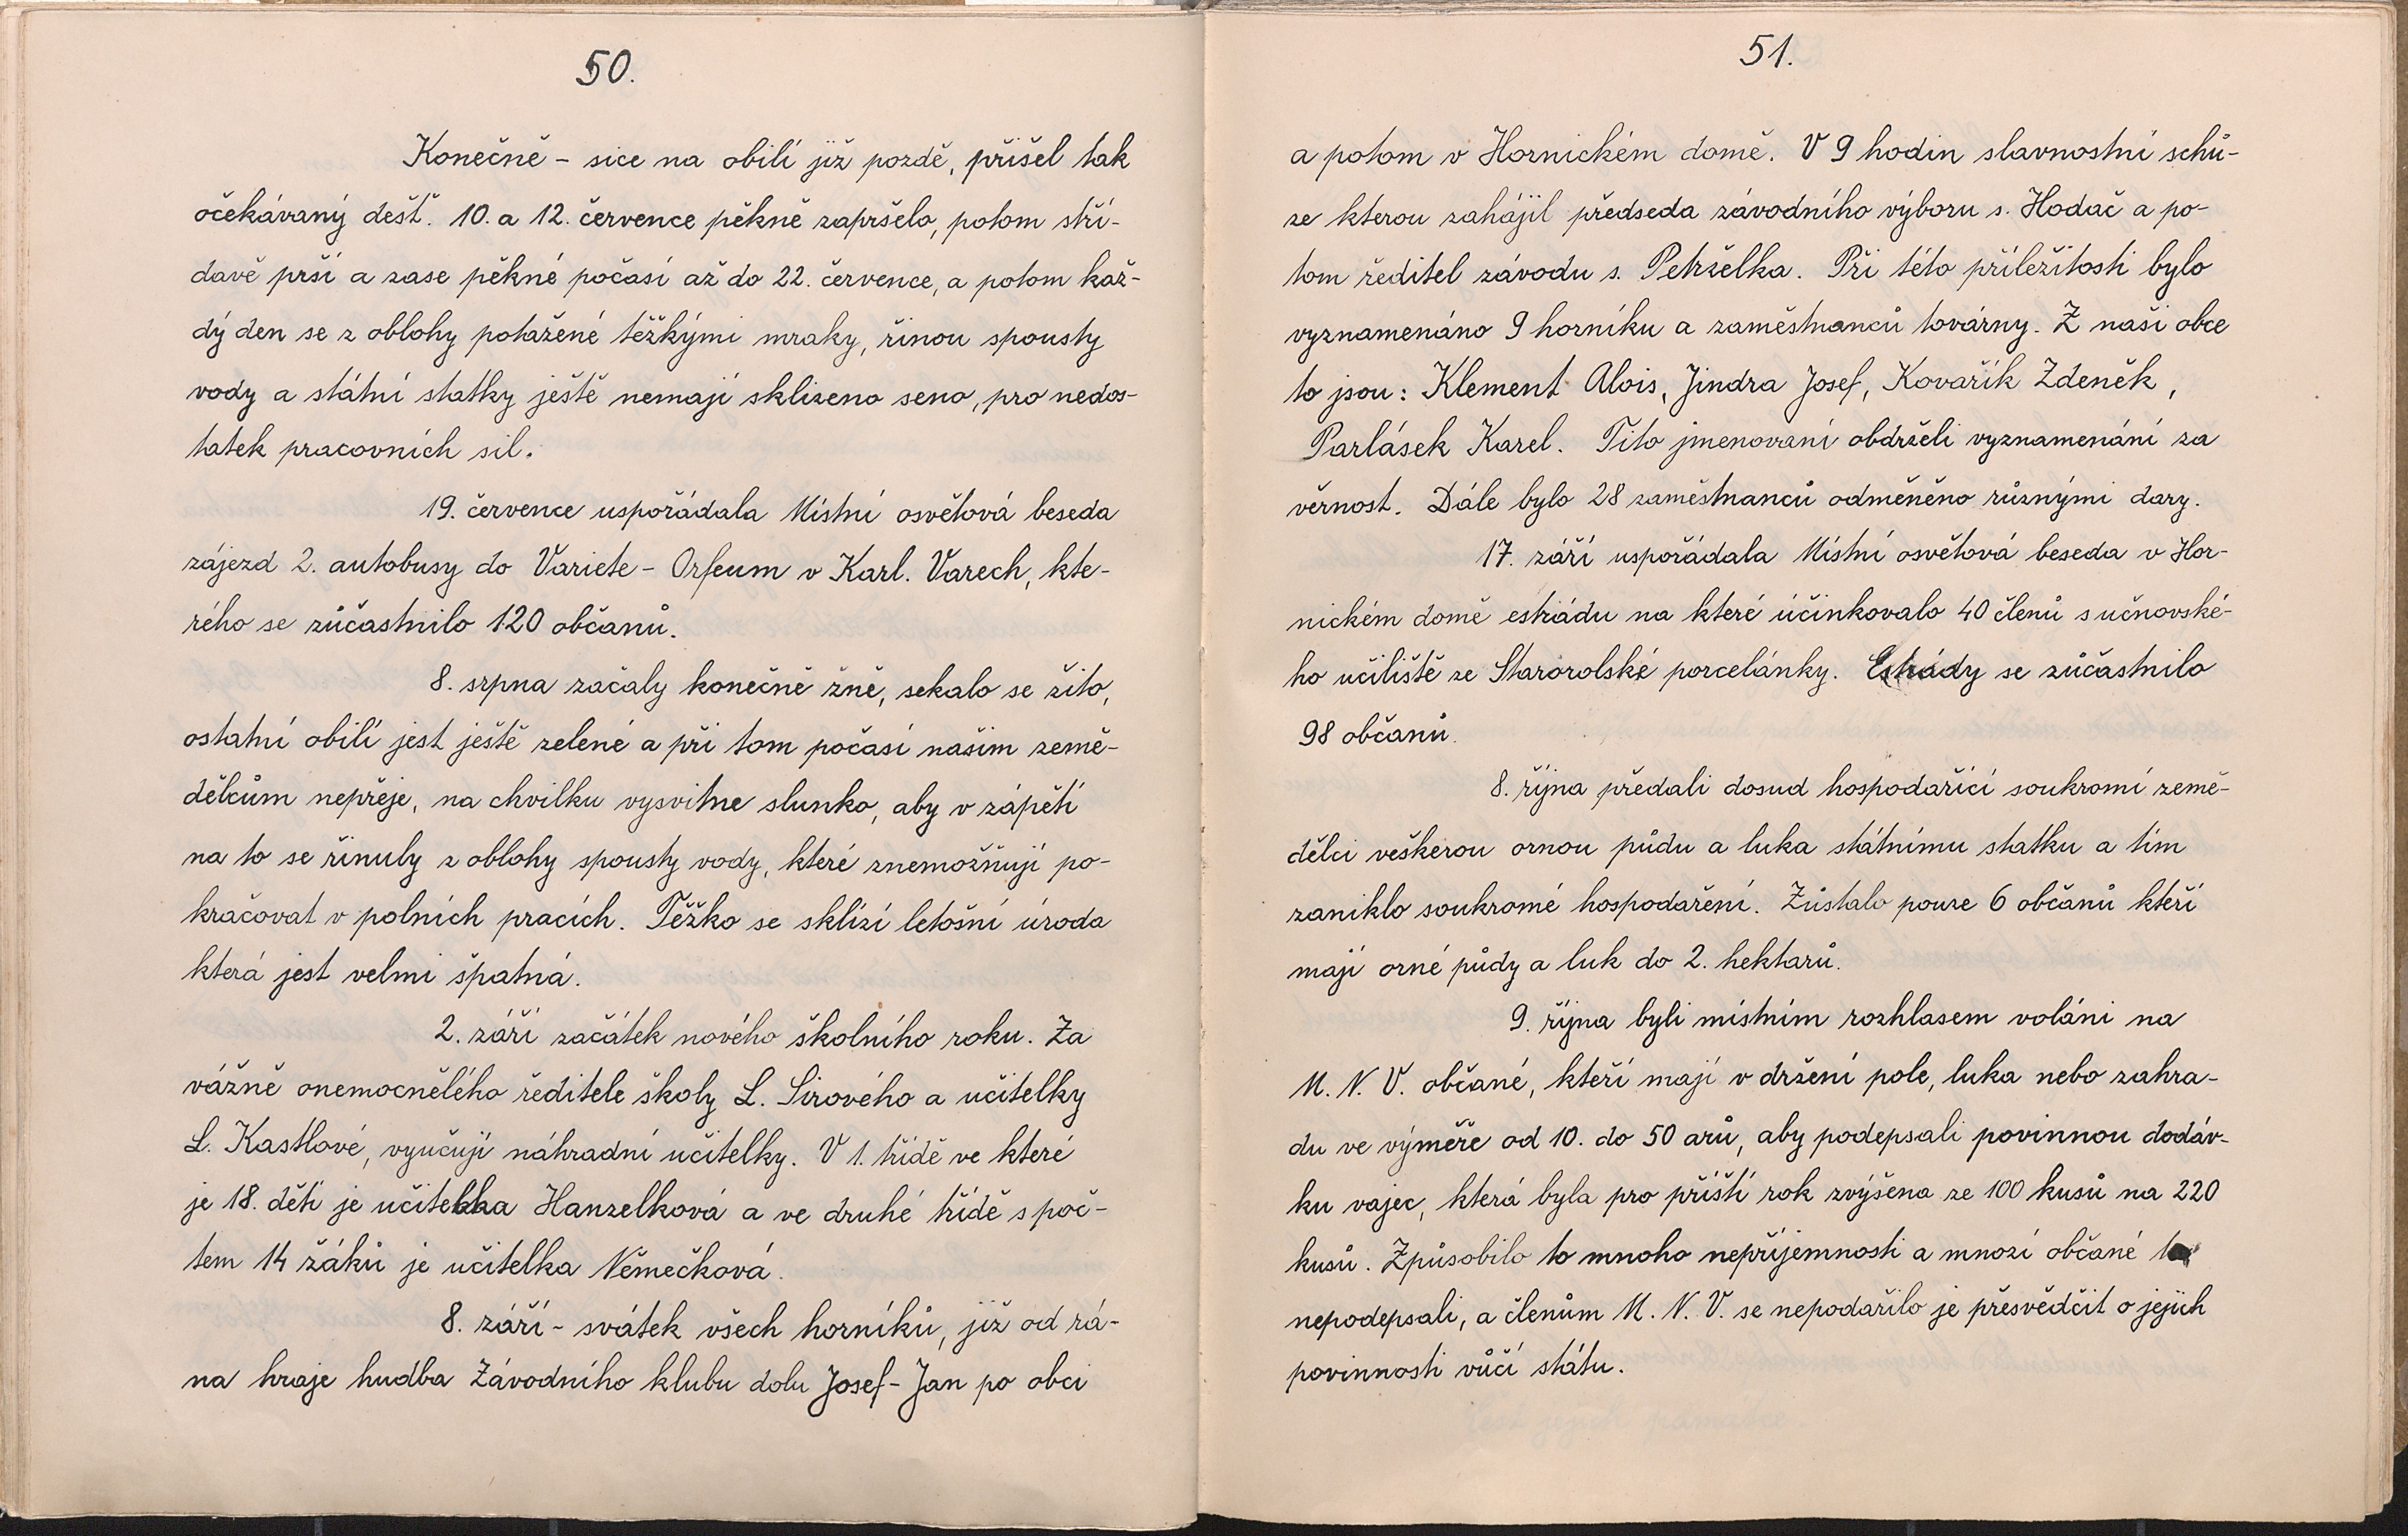 50.
Konečně - sice na obilí již pozdě, přišel tak
očekávaný déšť. 10. a 12. července pěkně zapršelo, potom stří-
davě prší a zase pěkné počasí až do 22. července, a potom kaž-
dý den se z oblohy potažené těžkými mraky, řinou spousty
vody a státní statky ještě nemají sklizeno seno, pro nedos-
tatek pracovních sil.
19. července uspořádala Místní osvětová beseda
zájezd 2. autobusy do Variete - Orfeum v Karl. Varech, kte-
rého se zůčastnilo 120 občanů.
8. srpna začaly konečně žně, sekalo se žito,
ostatní obilí jest ještě zelené a při tom počasí našim země-
dělcům nepřeje, na chvilku vysvitne slunko, aby v zápětí
na to se řinuly z oblohy spousty vody, které znemožňují po-
kračovat v polních pracích. Těžko se sklízí letošní úroda
která jest velmi špatná.
2. září začátek nového školního roku. Za
vážně onemocnělého ředitele školy L. Sirového a učitelky
L. Kastlové, vyučují náhradní učitelky. V 1. třídě ve které
je 18. dětí je učitelka Hanzelková a ve druhé třídě s poč-
tem 14 žáků je učitelka Němečková.
8. září - svátek všech horníků, již od rá-
na hraje hudba Závodního klubu dolu Josef - Jan po obci
51.
a potom v Hornickém domě. V 9 hodin slavnostní schů-
ze kterou zahájil předseda závodního výboru s. Hodač a po-
tom ředitel závodu s. Petrželka. Při této příležitosti bylo
vyznamenáno 9 horníku a zaměstnanců továrny. Z naši obce
to jsou: Klement Alois, Jindra Josef, Kovařík Zdeněk,
Parlásek Karel. Tito jmenovaní obdrželi vyznamenání za
věrnost. Dále bylo 28 zaměstnanců odměněno různými dary.
17. září uspořádala Místní osvětová beseda v Hor-
nickém domě estrádu na které účinkovalo 40 členů s učnovské-
ho učiliště ze Starorolské porcelánky. Estrády se zůčastnilo
98 občanů.
8. října předali dosud hospodařící soukromí země-
dělci veškerou ornou půdu a luka státnímu statku a tím
zaniklo soukromé hospodaření. Zůstalo pouze 6 občanů kteří
mají orné půdy a luk do 2. hektarů.
9. října byli místním rozhlasem voláni na
M. N. V. občané, kteří mají v držení pole, luka nebo zahra-
du ve výměře od 10. do 50 arů, aby podepsali povinnou dodáv-
ku vajec, která byla pro příští rok zvýšena ze 100 kusů na 220
kusů. Způsobilo to mnoho nepříjemnosti a mnozí občané to
nepodepsali, a členům M. N. V. se nepodařilo je přesvědčit o jejich
povinnosti vůčí státu.